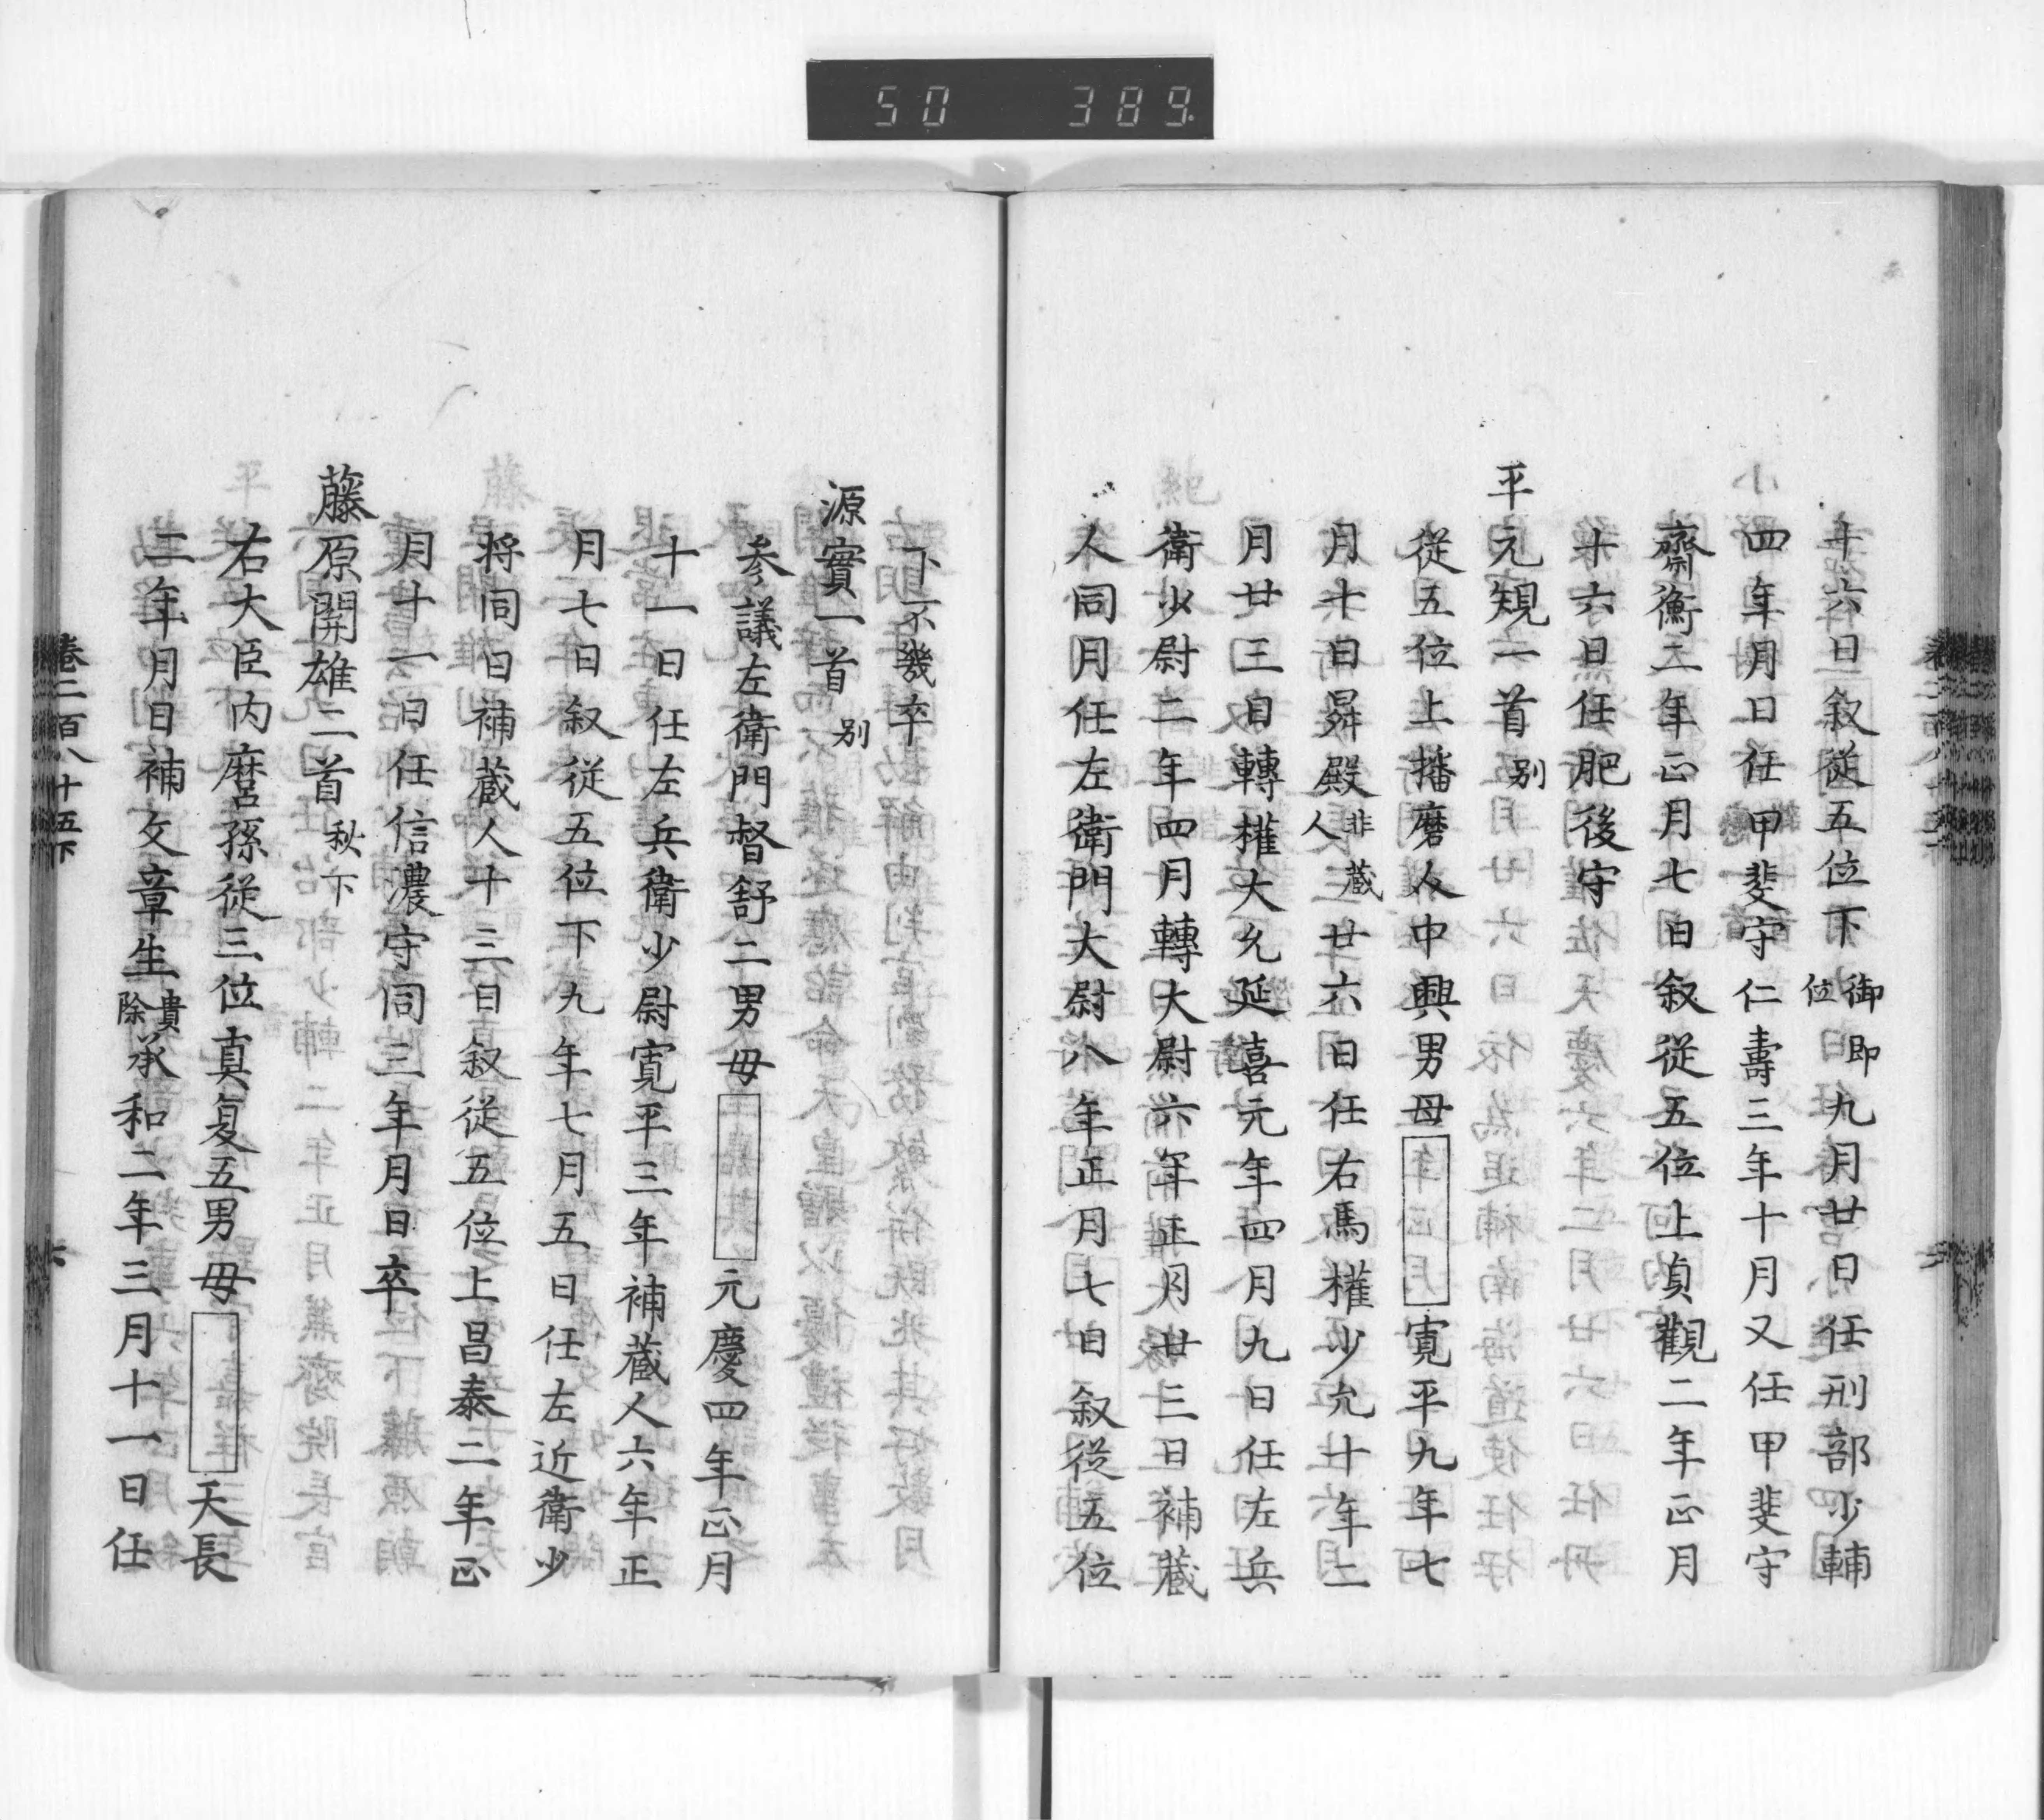 50 389
十六日叙従五位下御即位九月廿日任刑部少輔
四年月日任甲斐守仁壽三年十月又任甲斐守
齋衡二年正月七日叙従五位上貞觀二年正月
十六日任肥後守
平元規一首別
従五位上播磨介中興男母 寛平九年七
月十日昇殿非蔵人廿六日任右馬權少允十年二
月廿三日轉權大允延喜元年四月九日任左兵
衛少尉二年四月轉大尉六年正月廿三日補蔵
人同月任左衛門大尉八年正月七日叙従五位
下不幾卒
源實一首別
参議左衛門督舒二男母 元慶四年正月
十一日任左兵衛少尉寛平三年補蔵人六年正
月七日叙従五位下九年七月五日任左近衛少
将同日補蔵人十三日叙従五位上昌泰二年正
月十一日任信濃守同三年月日卒
藤原関雄二首秋下
右大臣内麿孫従三位真夏五男母 天長
二年月日補文章生貴除承和二年三月十一日任
巻二百八十五下